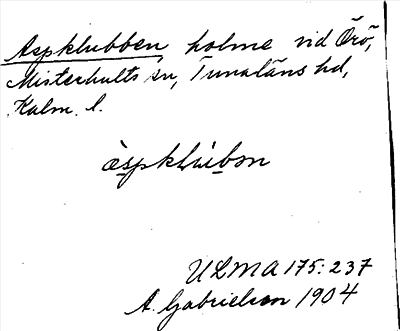 Aspklubben, holme vid Örö,
Misterhults sn, Tunaläns hd,
Kalm. l.
àspklùbən
ULMA 175:237
A. Gabrielson 1904